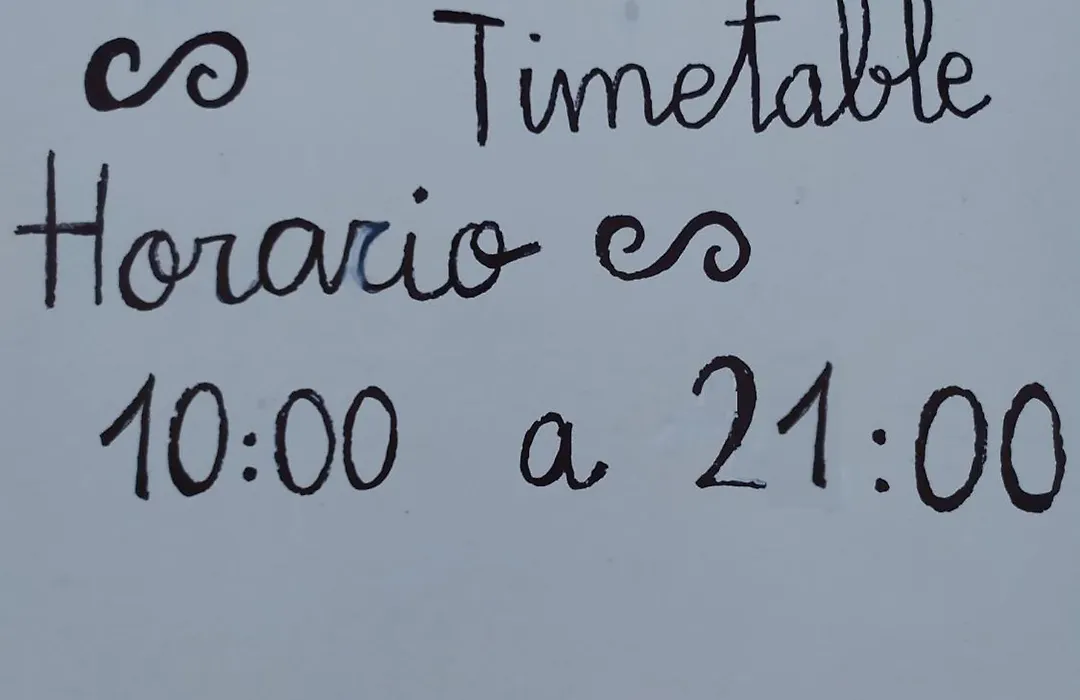 Timetable
Horario
10:00 a 21:00